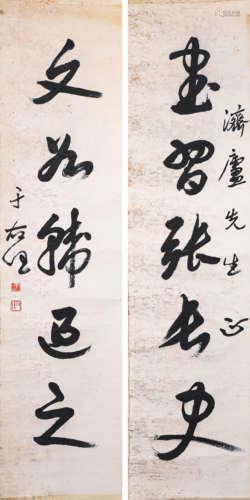 濟廬先生正
書習張長史
文韓退之
于右任